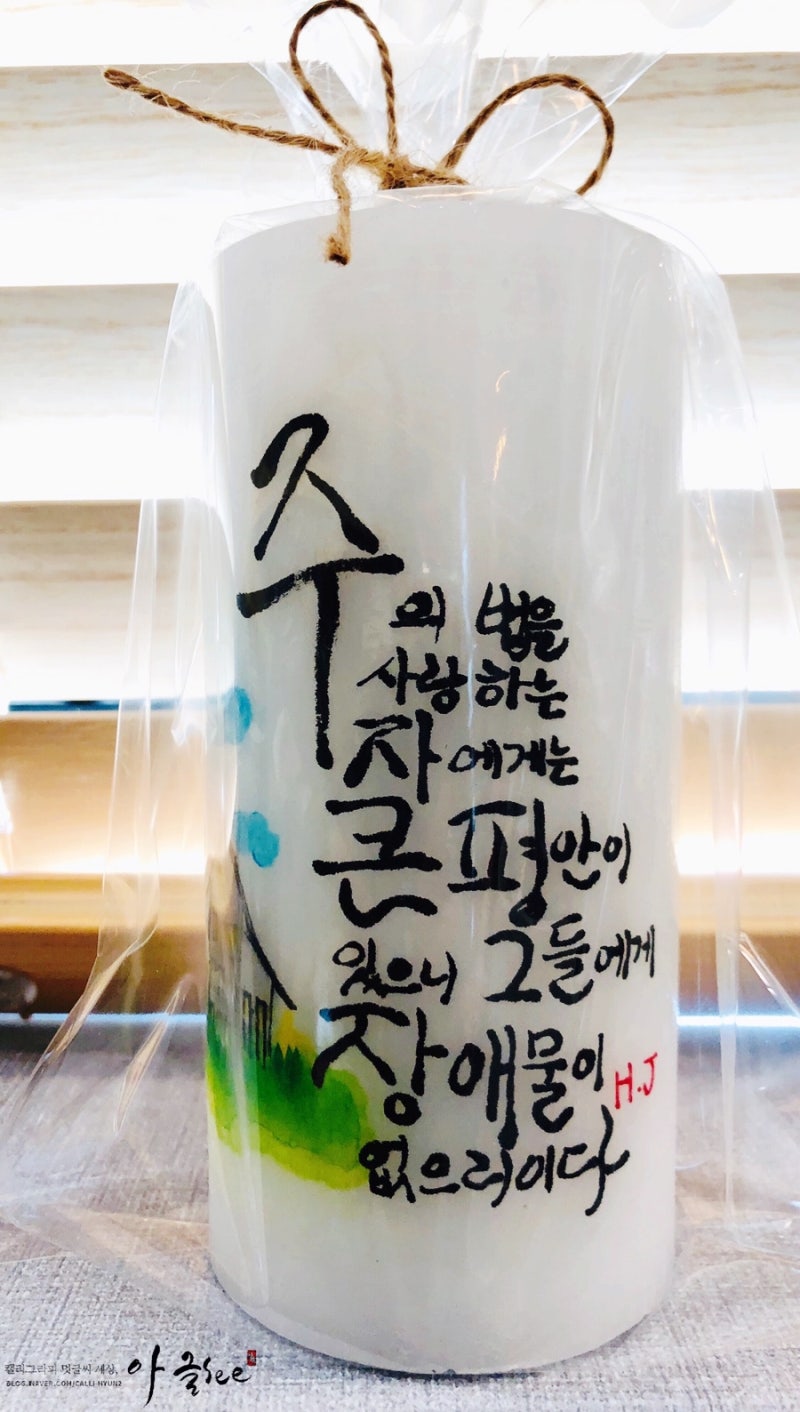 주의 법을
사랑하는
자에게는
큰 평안이
있으니 그들에게
장애물이
없으리이다
H.J
캘리그라피 멋글씨 세상,
아글see
BLOG.NAVER.COM/CALLI-HYUN2